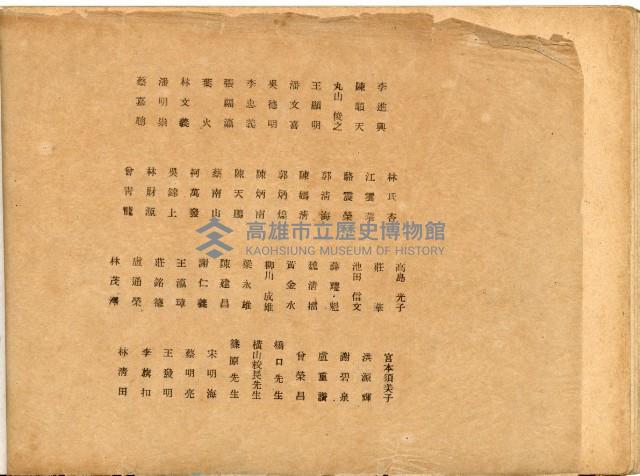 李進興
陳順天
丸山俊之
王顯明
潘文喜
吳德明
李忠義
張福瀛
葉火
林文義
潘明崇
蔡嘉聰
林氏杏
江雲華
駱震榮
郭清海
陳嬌清
郭炳煌
陳炳南
陳天賜
蔡南山
柯萬發
吳錦上
林財源
曾青龍
高島光子
莊華
池田信文
薛瓊魁
魏清檔
黃金水
柳川成雄
梁永雄
陳建昌
謝仁義
王瀛璋
莊銘德
盧通榮
林茂澤
宮本須美子
洪源輝
謝碧泉
盧重讚
曾榮昌
橋口先生
橫山校長先生
篠原先生
宋明海
蔡明亮
王發明
李旗扣
林清田
高雄市立歷史博物館
KAOHSIUNG MUSEUM OF HISTORY